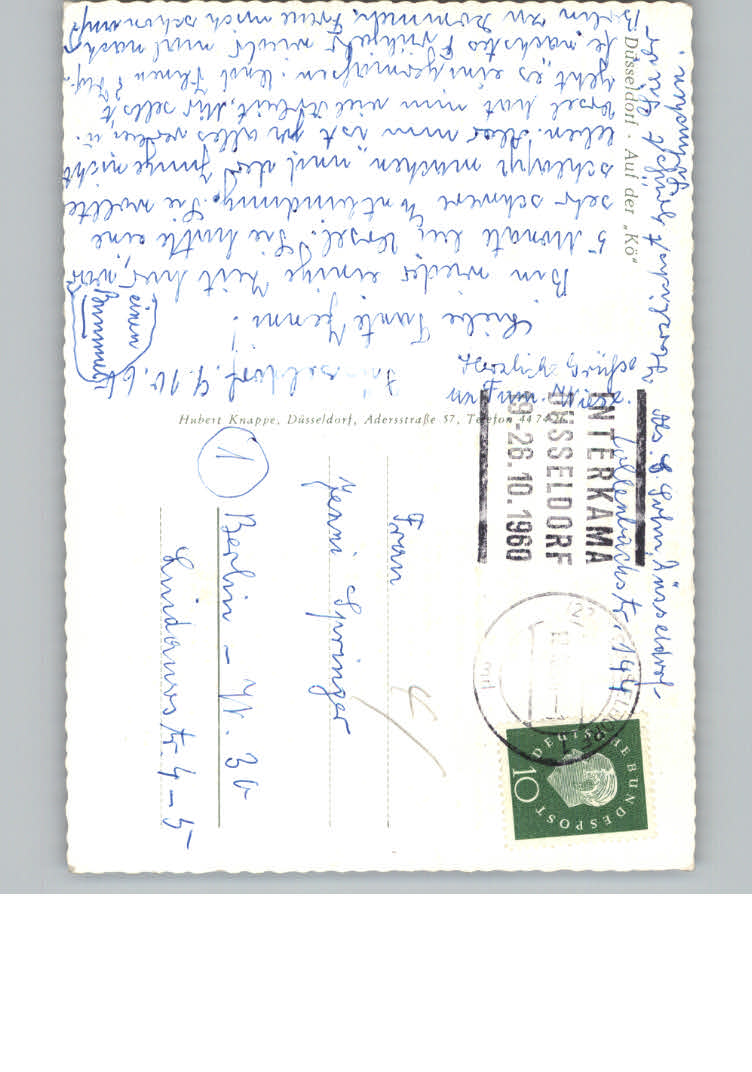 Düsseldorf · Auf der „Kö"
Düsseldorf, 9.10.60
Liebe Tante Jenni!
Bin wieder einige Zeit hier, war
5 Monate bei Ursel. Sie hatte eine
sehr schwere Entbindung. Sie wollte
„schlapp machen" und der Junge nicht
leben. Aber nun ist ja alles vorbei u.
Ursel hat nun viel Arbeit. Mir selbst
geht es einigermaßen. Und Ihnen? Hof-
fe nächstes Frühjahr wieder mal nach
Berlin zu kommen. Freue mich schon auf
einen
Bummel!
Hubert Knappe, Düsseldorf, Adersstraße 57, Telefon 44 74 26
Düsseldorf-
Collenbachstr. 144
INTERKAMA
DÜSSELDORF
19.-26.10.1960
DÜSSELDORF
DEUTSCHE BUNDESPOST
10
Frau
Jenni Springer
1 Berlin - W. 30
Lindauerstr. 4-5